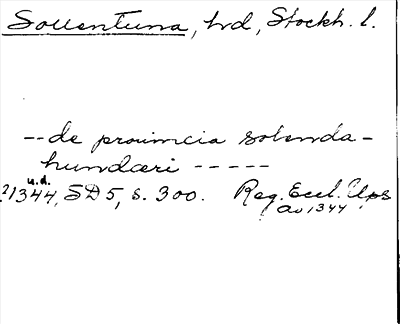 Sollentuna, hrd, Stockh. l.
-- de prouincia solenda-
hundæri -----
u.d.
?1344, SD 5, s. 300. Reg. Eccl. Ups
av 1344